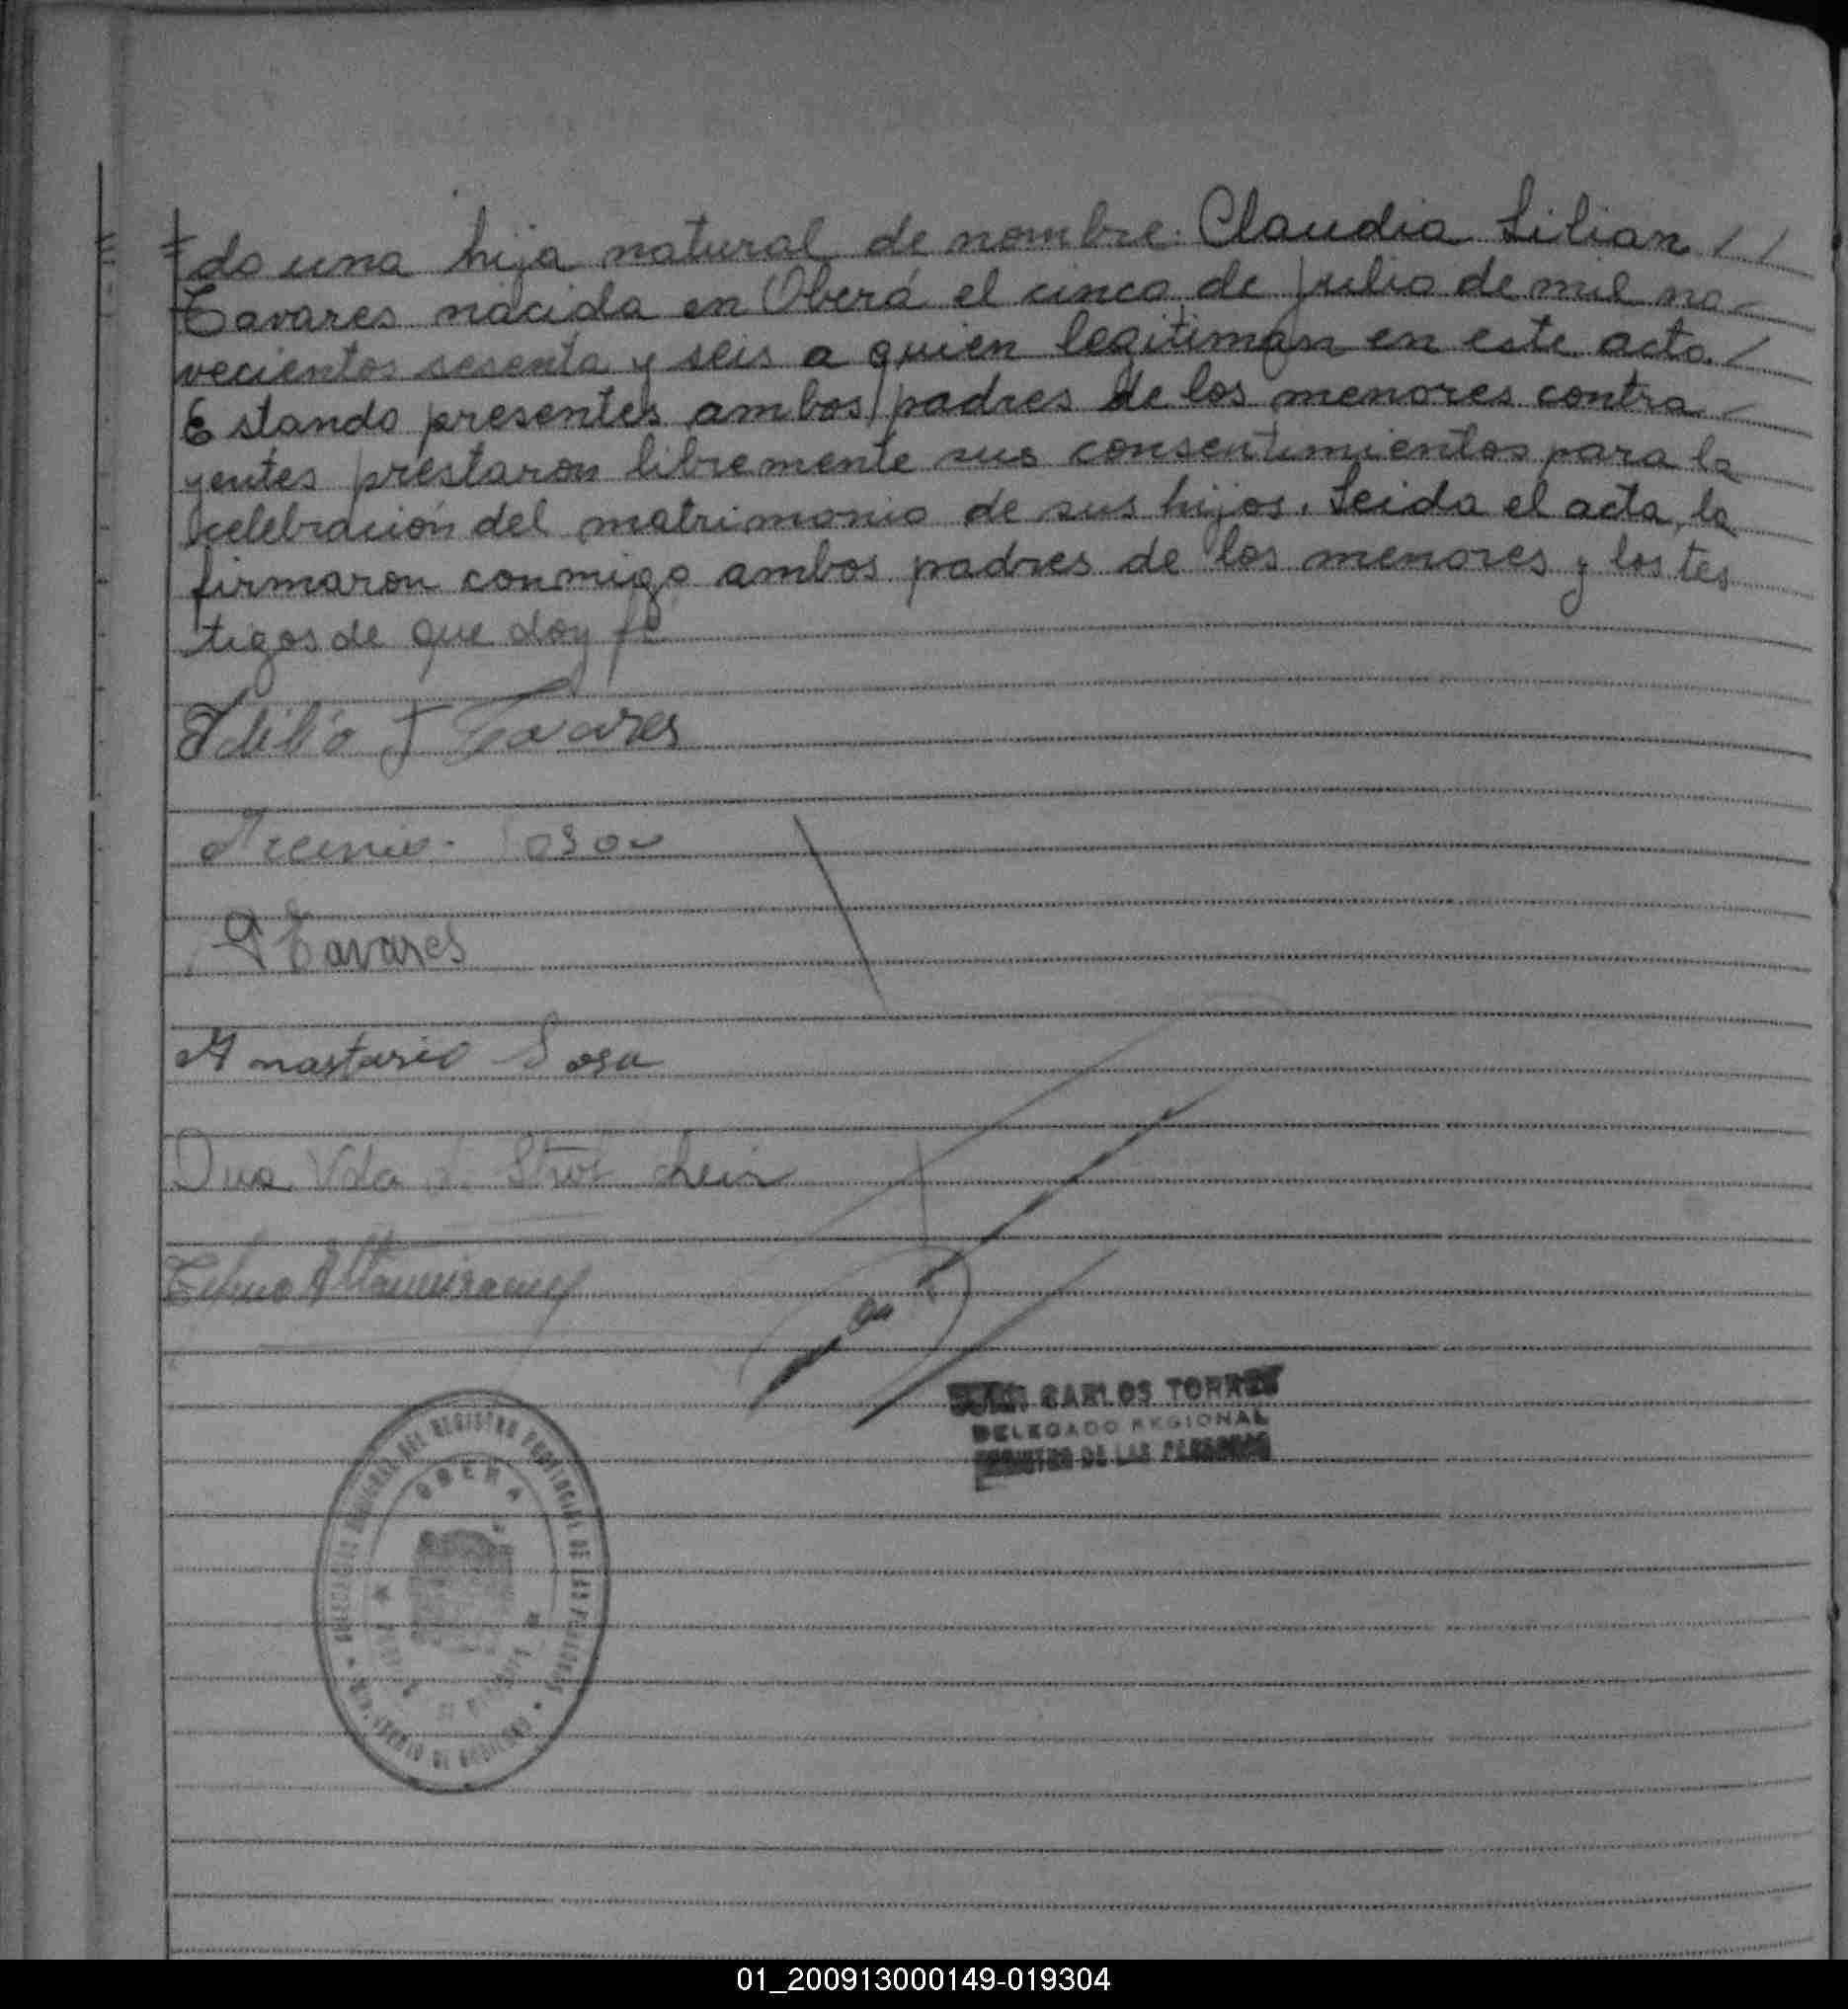 do una hija natural de nombre Claudia Lilian //
Tavares nacida en Oberá el cinco de julio de mil no-
vecientos sesenta y seis a quien legitiman en este acto. /
Estando presentes ambos padres de los menores contra-
yentes prestaron libremente sus consentimientos para la
celebración del matrimonio de sus hijos. Leida el acta, la
firmaron conmigo ambos padres de los menores y los tes
tigos de que doy fé
Idilio J Tavares
Sosa
Tavares
Anastasio Sosa
Vda
JUAN CARLOS TORRES
DELEGADO REGIONAL
REGISTRO DE LAS PERSONAS
DEL REGISTRO PROVINCIAL DE LAS PERSONAS
OBERA
MINISTERIO DE GOBIERNO
01_200913000149-019304